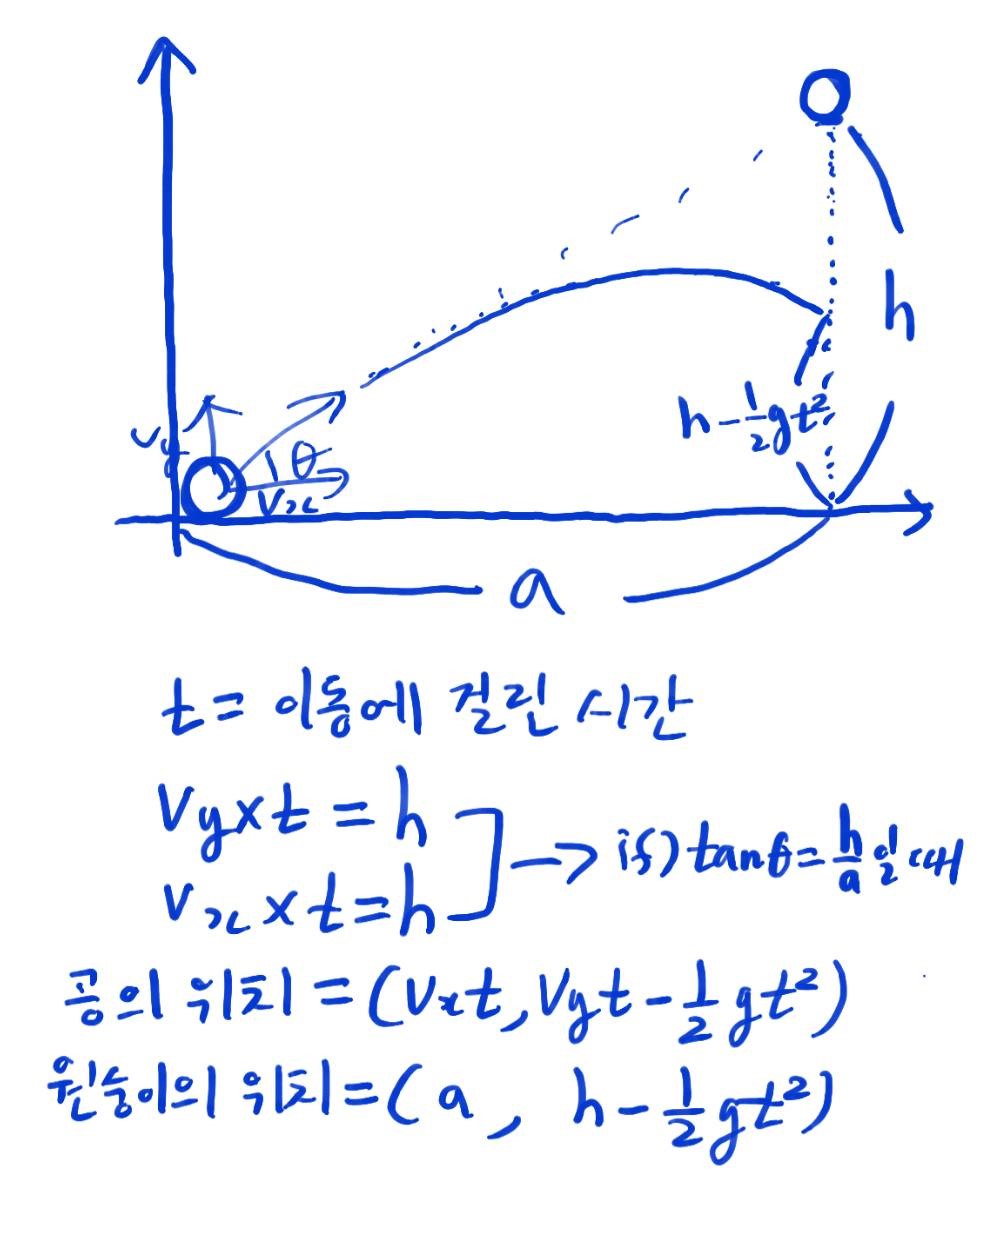 h
Vy
θ
Vx
h-½gt²
a
t = 이동에 걸린 시간
Vy×t = h
Vx×t=h
→ if) tanθ=h/a 일 때
공의 위치 = (Vxt, Vyt-½gt²)
원숭이의 위치=(a, h-½gt²)